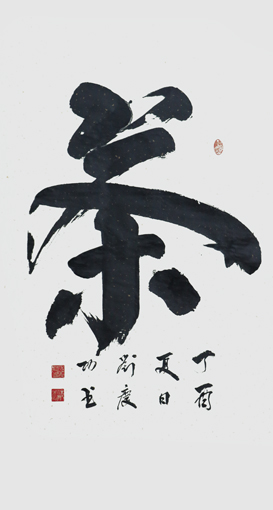 茶
丁酉
夏日
劉慶
功书